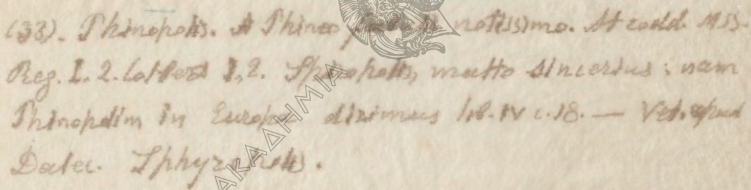 (33). Phinopolis. A Phineo notissimo. At codd. MSS.
Reg. 1. 2. Colbert 1. 2. multo sincerius: nam
Phinopolim in Europa diximus lib. IV c. 18. — Vet. apud
Dalec.
ΑΚΑΔΗΜΙΑ